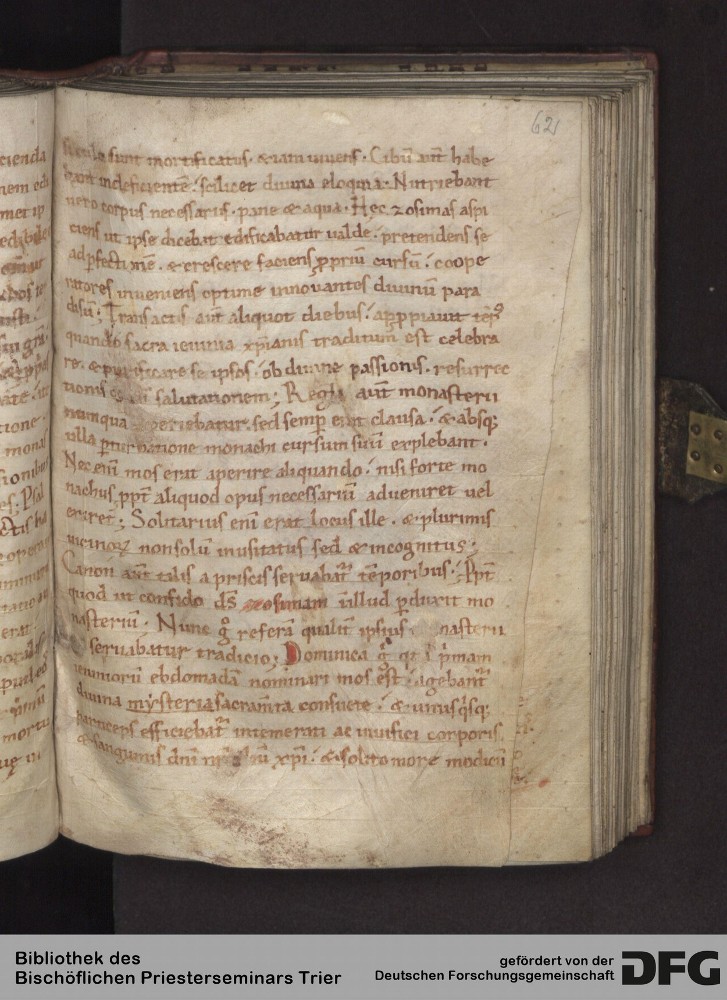 62
sunt mortificatus. & iam uiuens. Cibū aūt habe
bant indeficientē. scilicet diuina eloquia. Nutriebant
uero corpus necessariis. pane & aqua. Hęc zosimas aspi
ciens ut ipse dicebat edificabatur ualde. pretendens se
ad ꝑfectionē. & crescere faciens ꝓpriū cursū. coope
ratores inueniens optime innouantes diuinū para
disū; Transactis aūt aliquot diebus. apꝓpiauit tēpꝰ
quando sacra ieiunia xp̄ianis traditum est celebra
re. & purificare se ipsos. ob diuine passionis. resurrec
tionis salutationem; Regia aūt monasterii
numquā aperiebatur. sed semꝑ erat clausa. & absqꝫ
ulla ꝑturbatione monachi cursum suū explebant.
Nec enī mos erat aperire aliquando. nisi forte mo
nachus ꝓpt̄ aliquod opus necessariū adueniret uel
exiret; Solitarius enī erat locus ille. & plurimis
uicinoꝝ non solū inusitatus sed & incognitus;
Canon aūt talis a priscis seruabat᷑ tēporibus. Ꝓpt̄
quod ut confido d̄s zosimam illud ꝑduxit mo
nasteriū. Nunc g̊ referā qualit̄ ipsius monasterii
seruabatur tradicio; Dominica pͥmam
ieiuniorū ebdomadā nominari mos est. agebant᷑
diuina mysteria sacram̄ta consuete. & unusqͥsqꝫ
particeps efficiebat᷑ intemerati ac uiuifici corporis.
& sanguinis dn̄i xp̄i. & solito more modicū
Bibliothek des
Bischöflichen Priesterseminars Trier
gefördert von der
Deutschen Forschungsgemeinschaft
DFG